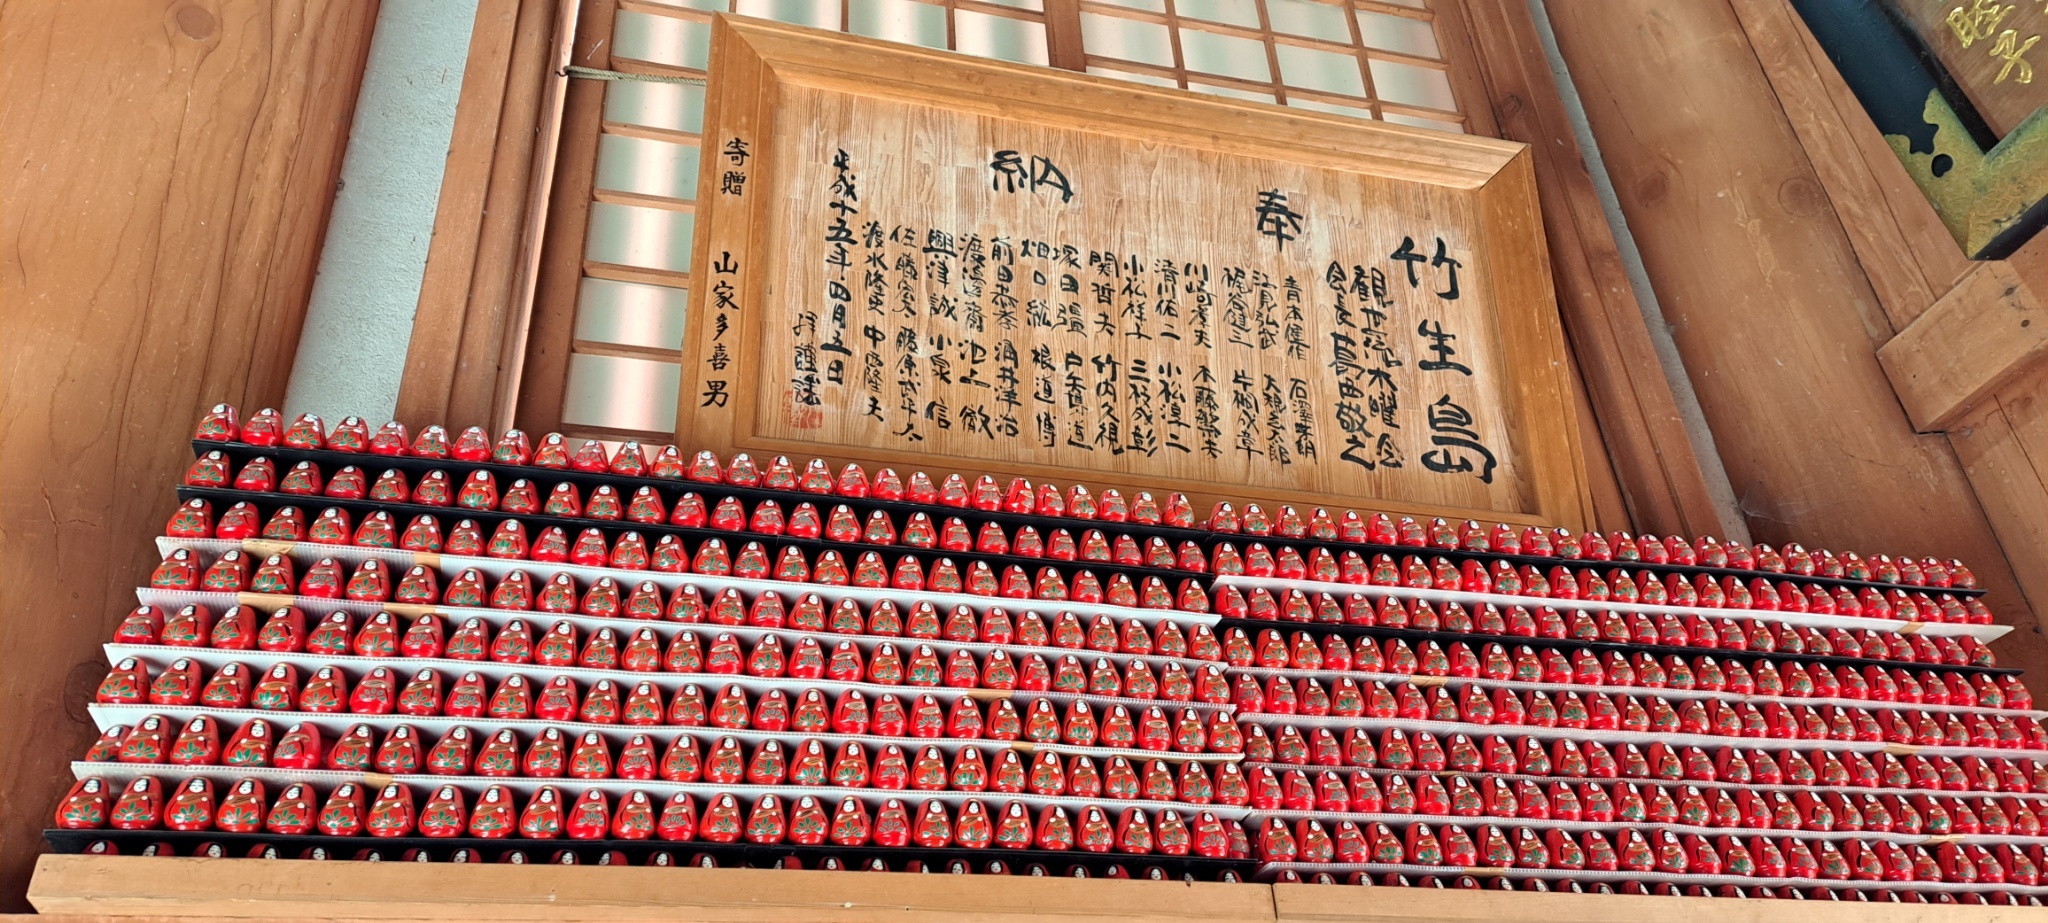 竹生島
観世流水曜会
会長 葛西敬之
奉
納
青木健作 石澤
弘武 大槻三太郎
梶谷健三 片桐成章
川崎孝夫 本藤
清川佑二 小松淳二
小松祥子 三村成彰
関哲夫 竹内久視
塚田彊 戸香慎道
畑口紘 根道博
前田恭孝 海井洋治
渡邊蘭 池上徹
興津誠 小泉信
佐藤宏 藤原武平太
渡水隆史 中西隆夫
平成十五年四月五日
拝謹謡
寄贈 山家多喜男